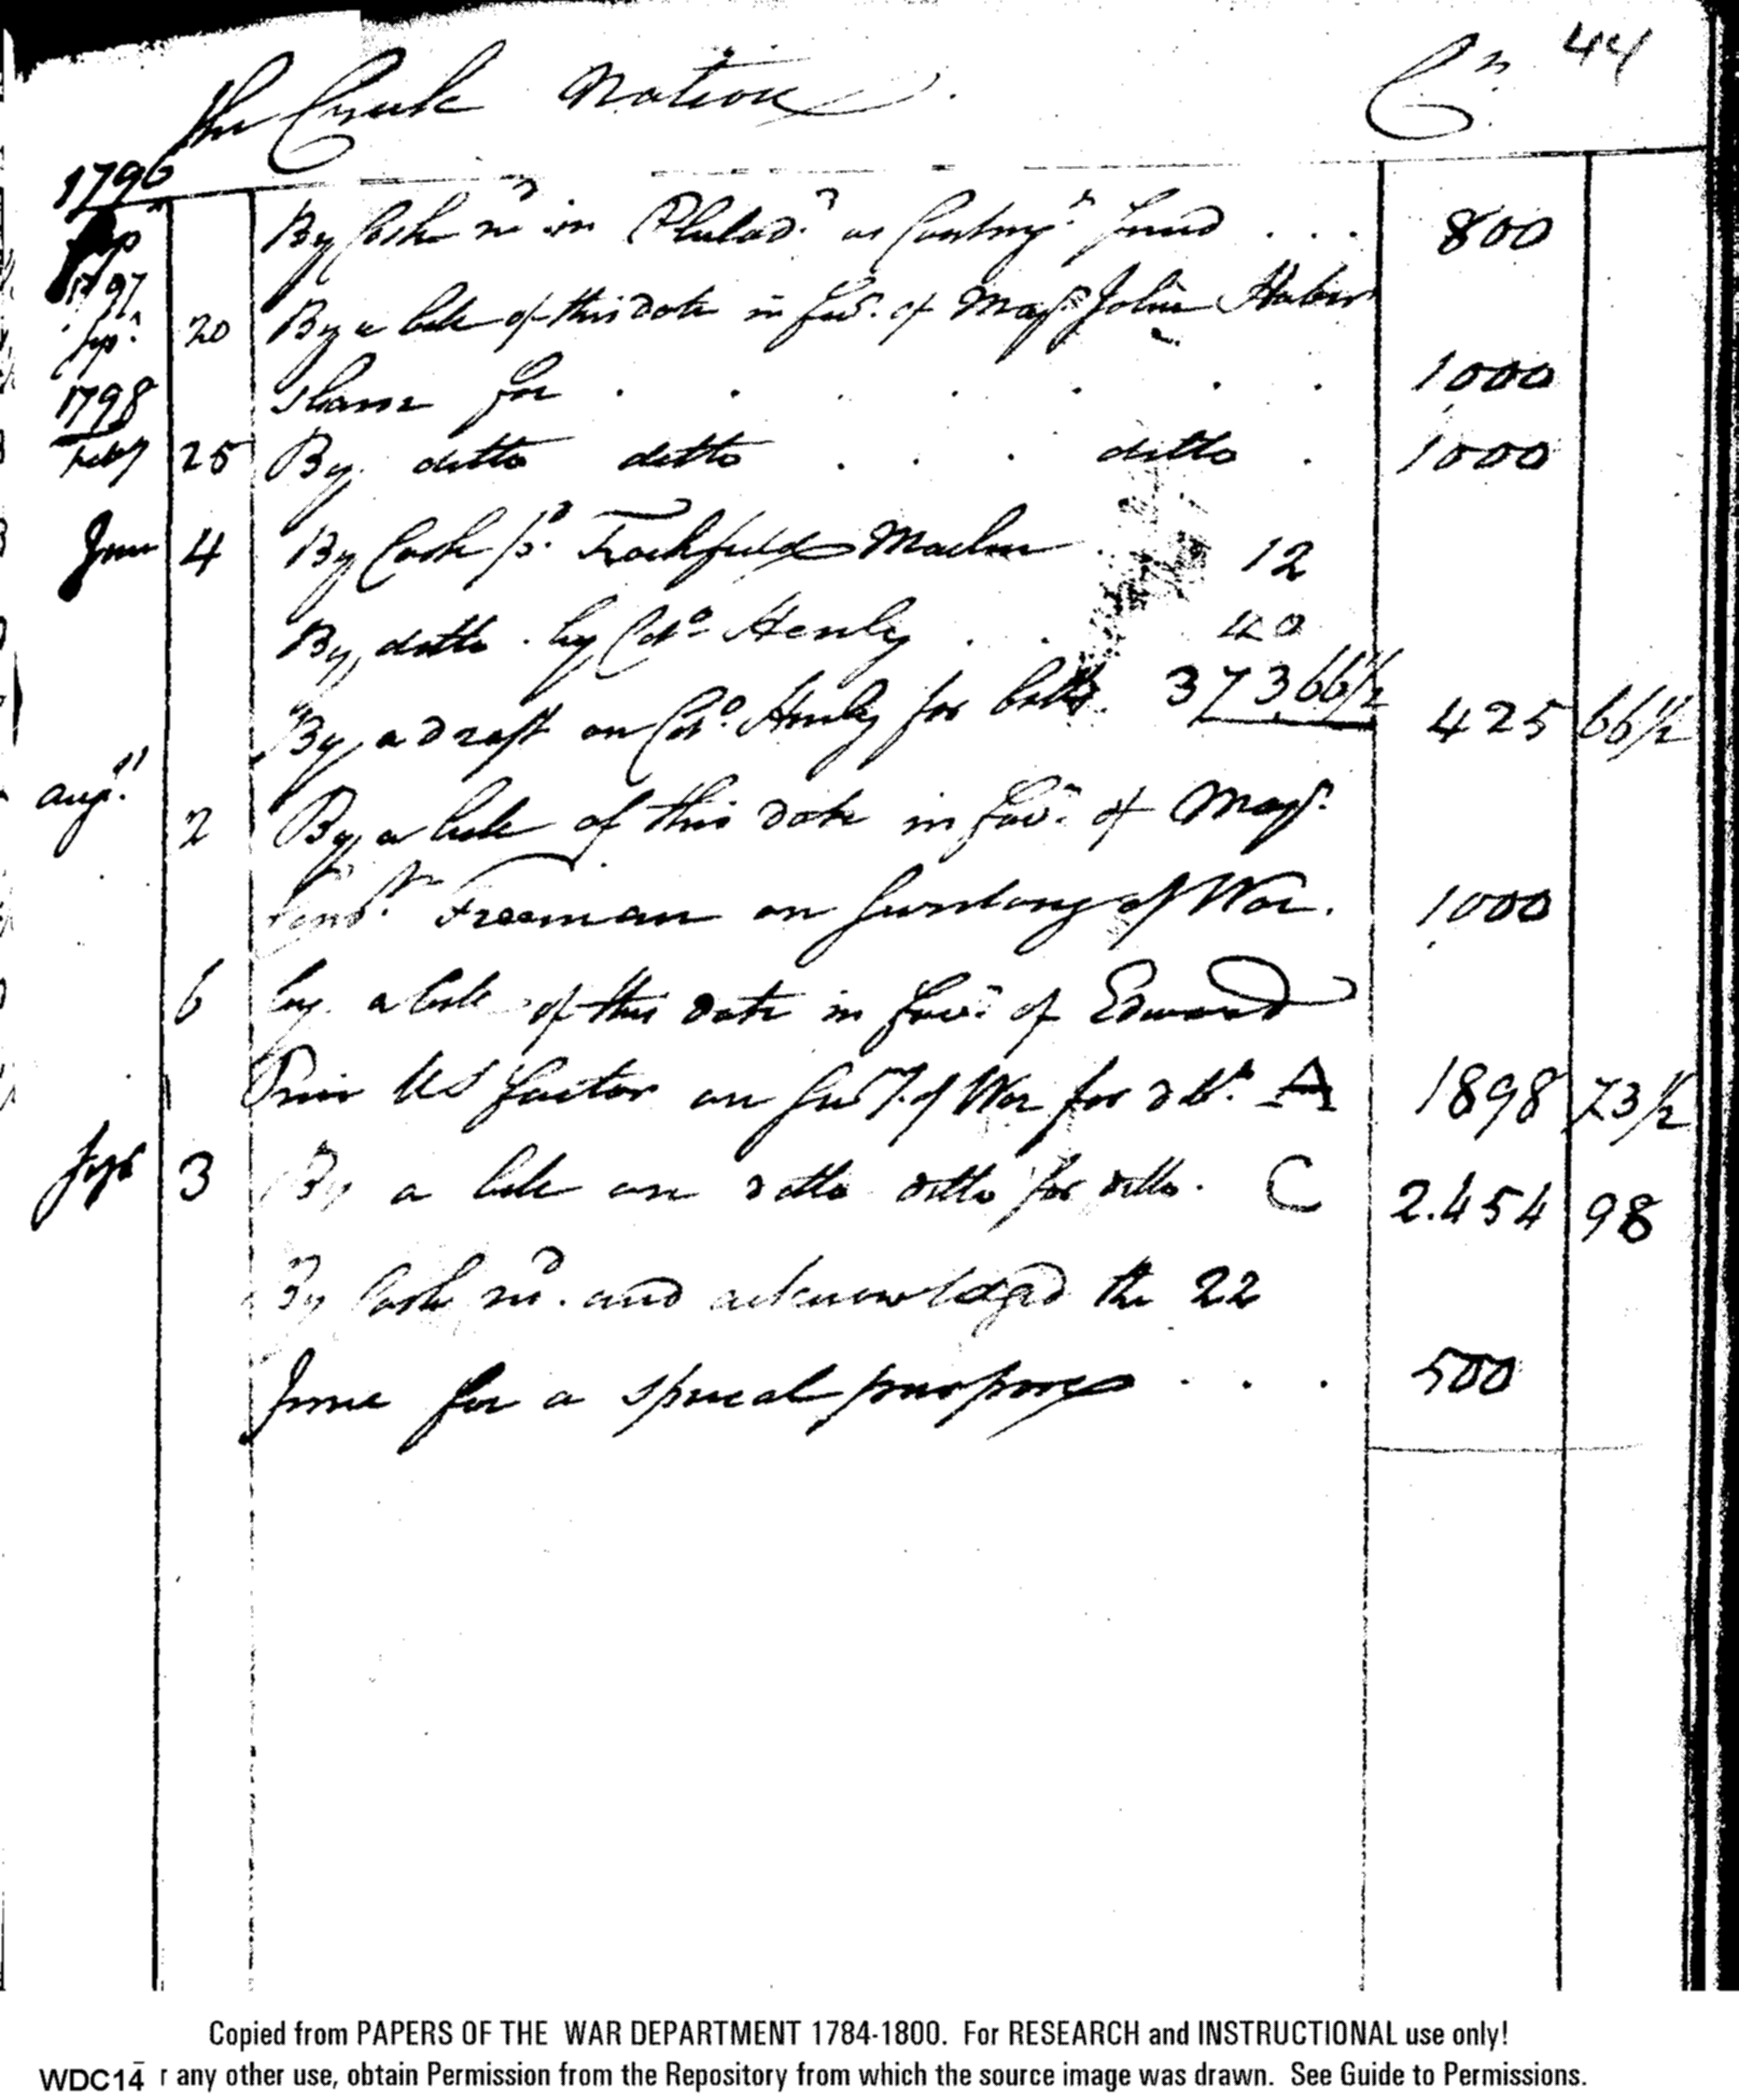 44
The Creek Nation Cr.
1796
Sepr By Cash recd in Philada. as Contingt. fund . . . 800
1797
Sepr. 20 By a bill of this date in favr. of Majr. John Haber
sham for . . . . . . . 1000
1798
Feby 25 By ditto ditto . . . ditto . 1000
June 4 By Cash pd. Touchfield Maclin . 12
By ditto . by Colo. Henly . . . 40
By a draft on Colo. Henly for bills. 373.66½ 425 66½
augt.
2 By a bill of this date in favr. of Majr.
Freeman on Secretary of War. 1000
6 by a bill of this date in favr. of Edward
Price US factor on Secy. of War for dbt. A 1898 73½
Sepr 3 By a bill on ditto ditto for ditto. C 2.454 98
By Cash recd. and acknowledged the 22
June for a special purpose . . . 500
Copied from PAPERS OF THE WAR DEPARTMENT 1784-1800. For RESEARCH and INSTRUCTIONAL use only!
WDC14 r any other use, obtain Permission from the Repository from which the source image was drawn. See Guide to Permissions.